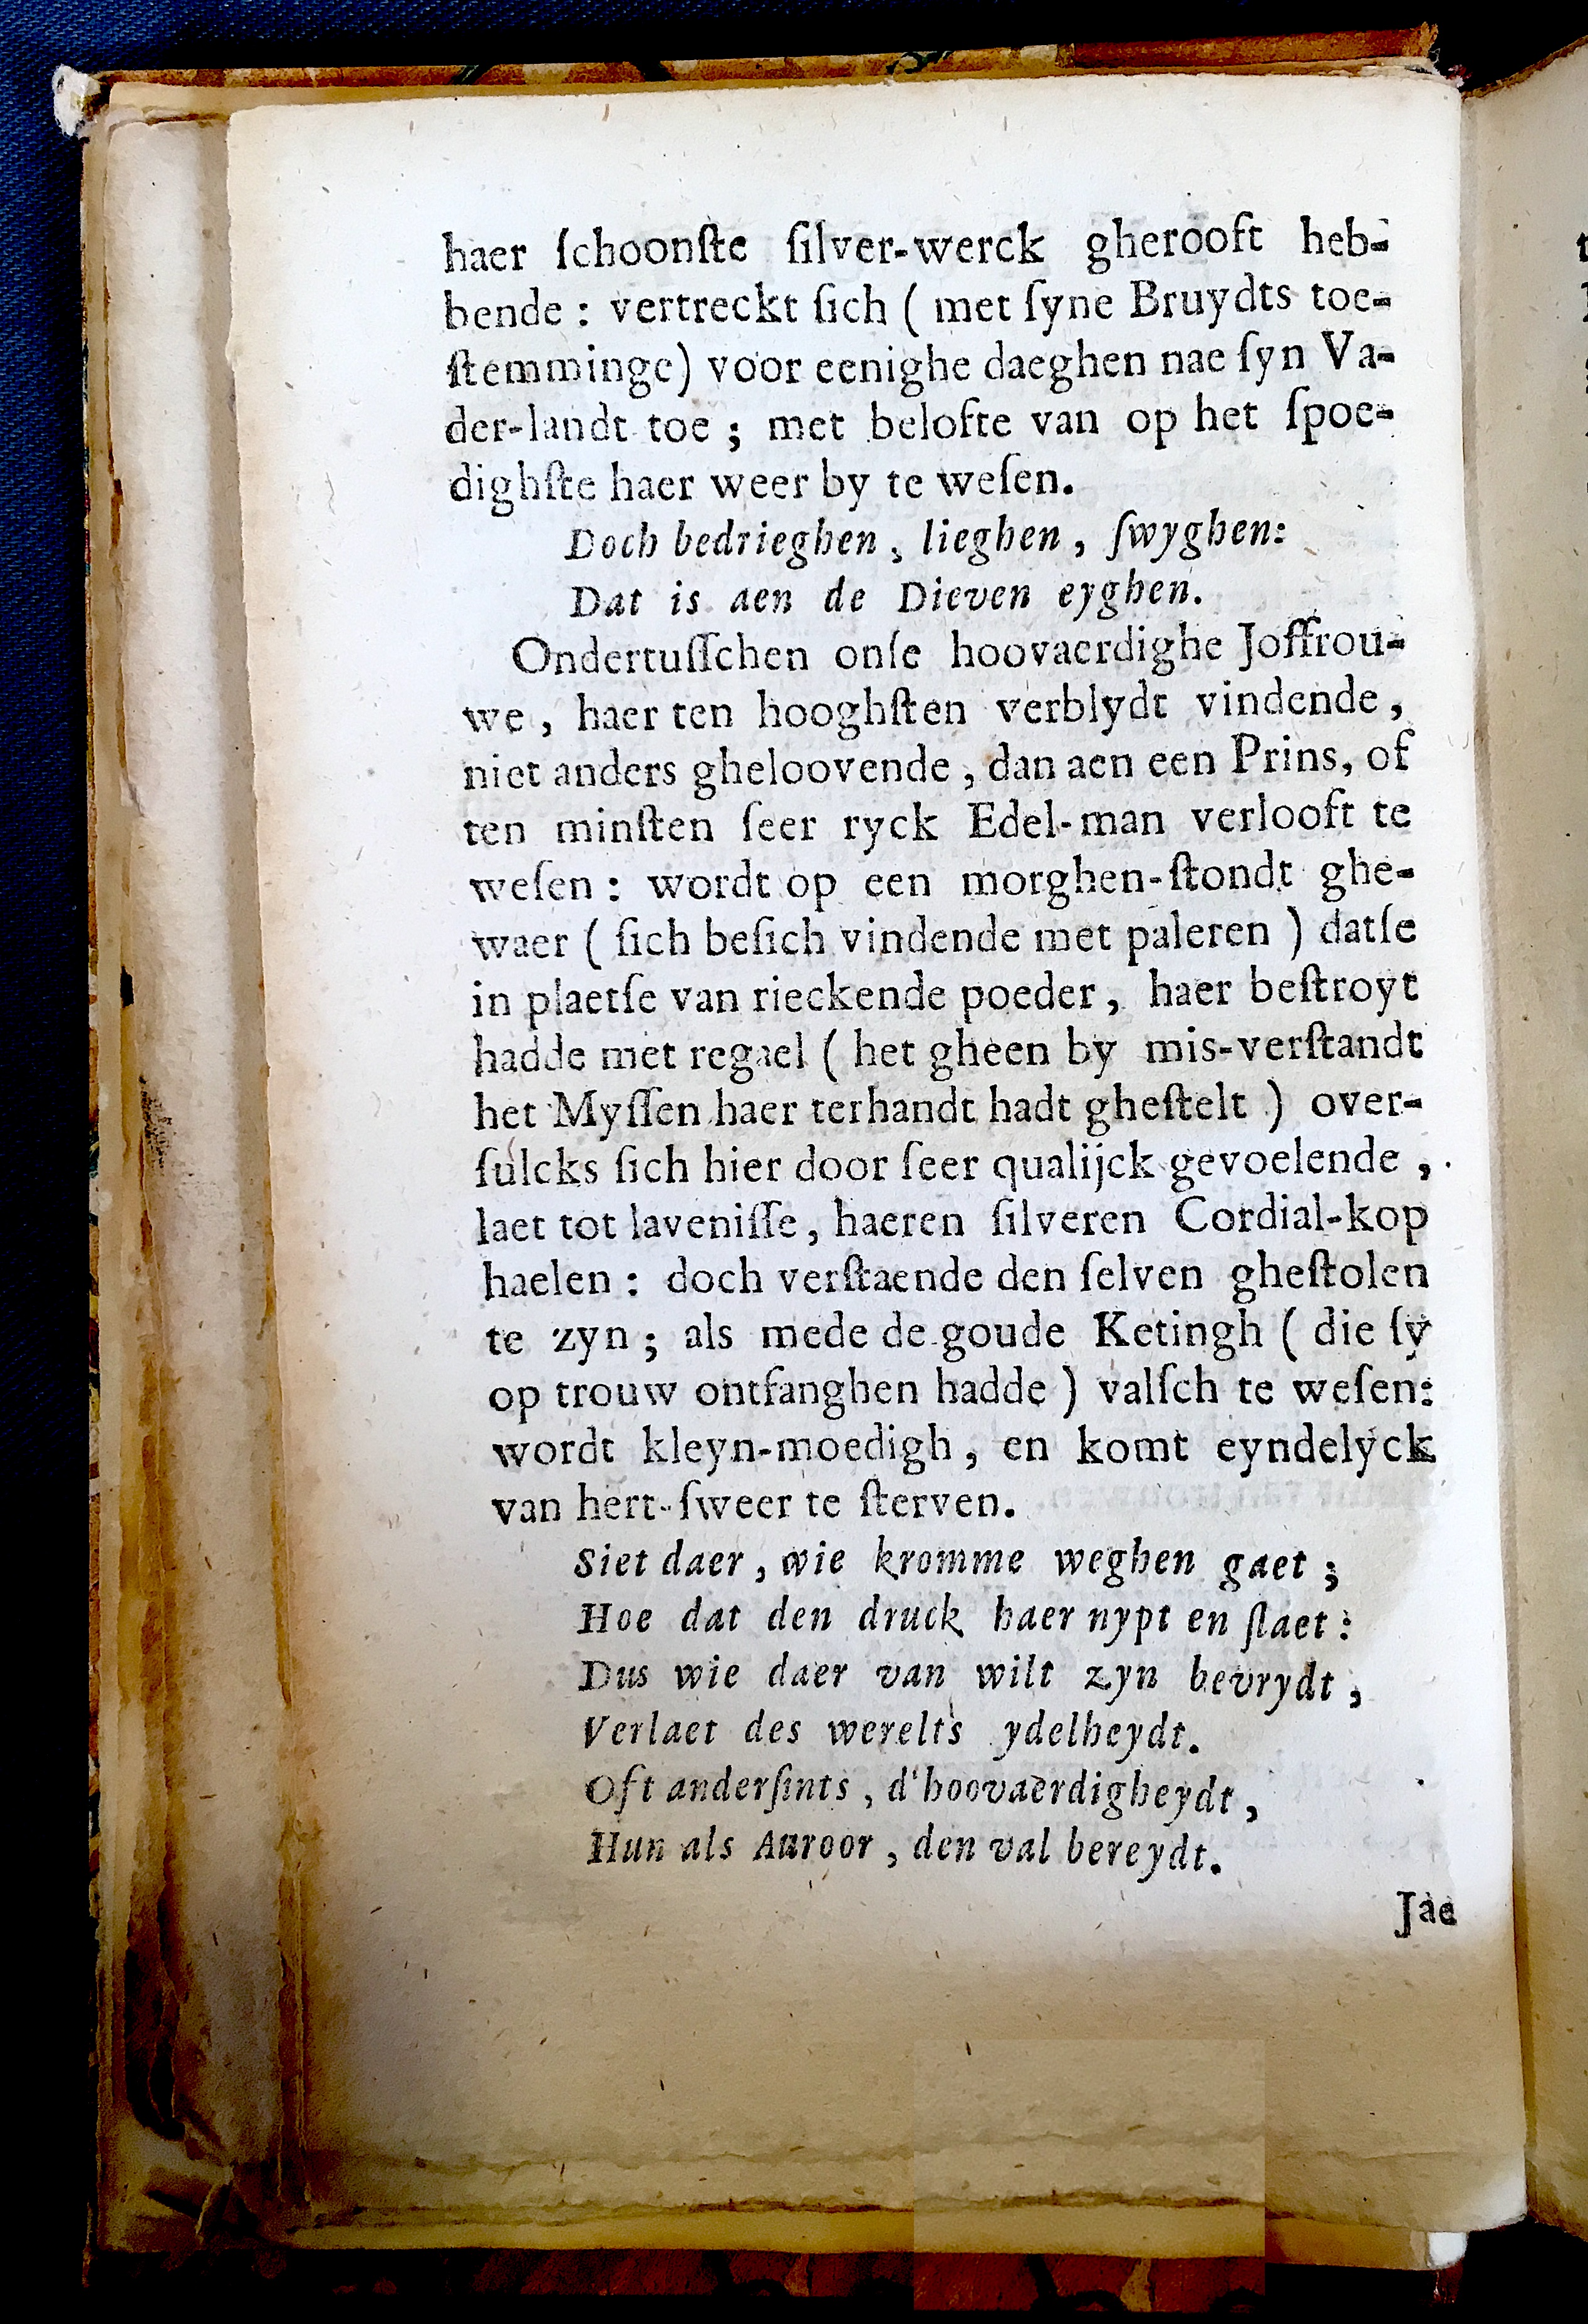 haer ſchoonſte ſilver-werck gherooft heb-
bende : vertreckt ſich ( met ſyne Bruydts toe-
ſtemminge) voor eenighe daeghen nae ſyn Va-
der-landt toe ; met belofte van op het ſpoe-
dighſte haer weer by te weſen.
Doch bedrieghen , lieghen , ſwyghen:
Dat is aen de Dieven eyghen.
Ondertuſſchen onſe hoovaerdighe Joffrou-
we , haer ten hooghſten verblydt vindende ,
niet anders gheloovende , dan aen een Prins, of
ten minſten ſeer ryck Edel-man verlooft te
weſen : wordt op een morghen-ſtondt ghe-
waer ( ſich beſich vindende met paleren ) datſe
in plaetſe van rieckende poeder , haer beſtroyt
hadde met regael ( het gheen by mis-verſtandt
het Myſſen haer terhandt hadt gheſtelt ) over-
ſulcks ſich hier door ſeer qualijck gevoelende ,
laet tot laveniſſe , haeren ſilveren Cordial-kop
haelen : doch verſtaende den ſelven gheſtolen
te zyn ; als mede de goude Ketingh ( die ſy
op trouw ontfanghen hadde ) valſch te weſen:
wordt kleyn-moedigh , en komt eyndelyck
van hert-ſweer te ſterven.
Siet daer , wie kromme weghen gaet ;
Hoe dat den druck haer nypt en ſlaet :
Dus wie daer van wilt zyn bevrydt ,
Verlaet des werelts ydelheydt.
Oft anderſints , d'hoovaerdigheydt ,
Hun als Auroor , den val bereydt.
Jae